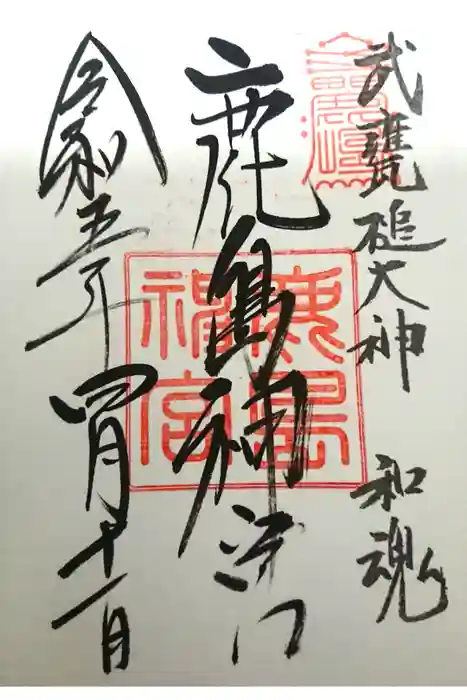 武甕槌大神 和魂
鹿島神流門
令和五年四月十一日
鹿島神宮